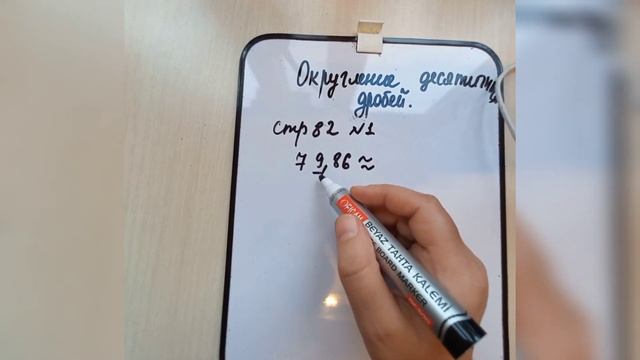 Округление десятичных
дробей.
стр 82 №1
79,86 ≈
BEYAZ TAHTA KALEMİ
BOARD MARKER